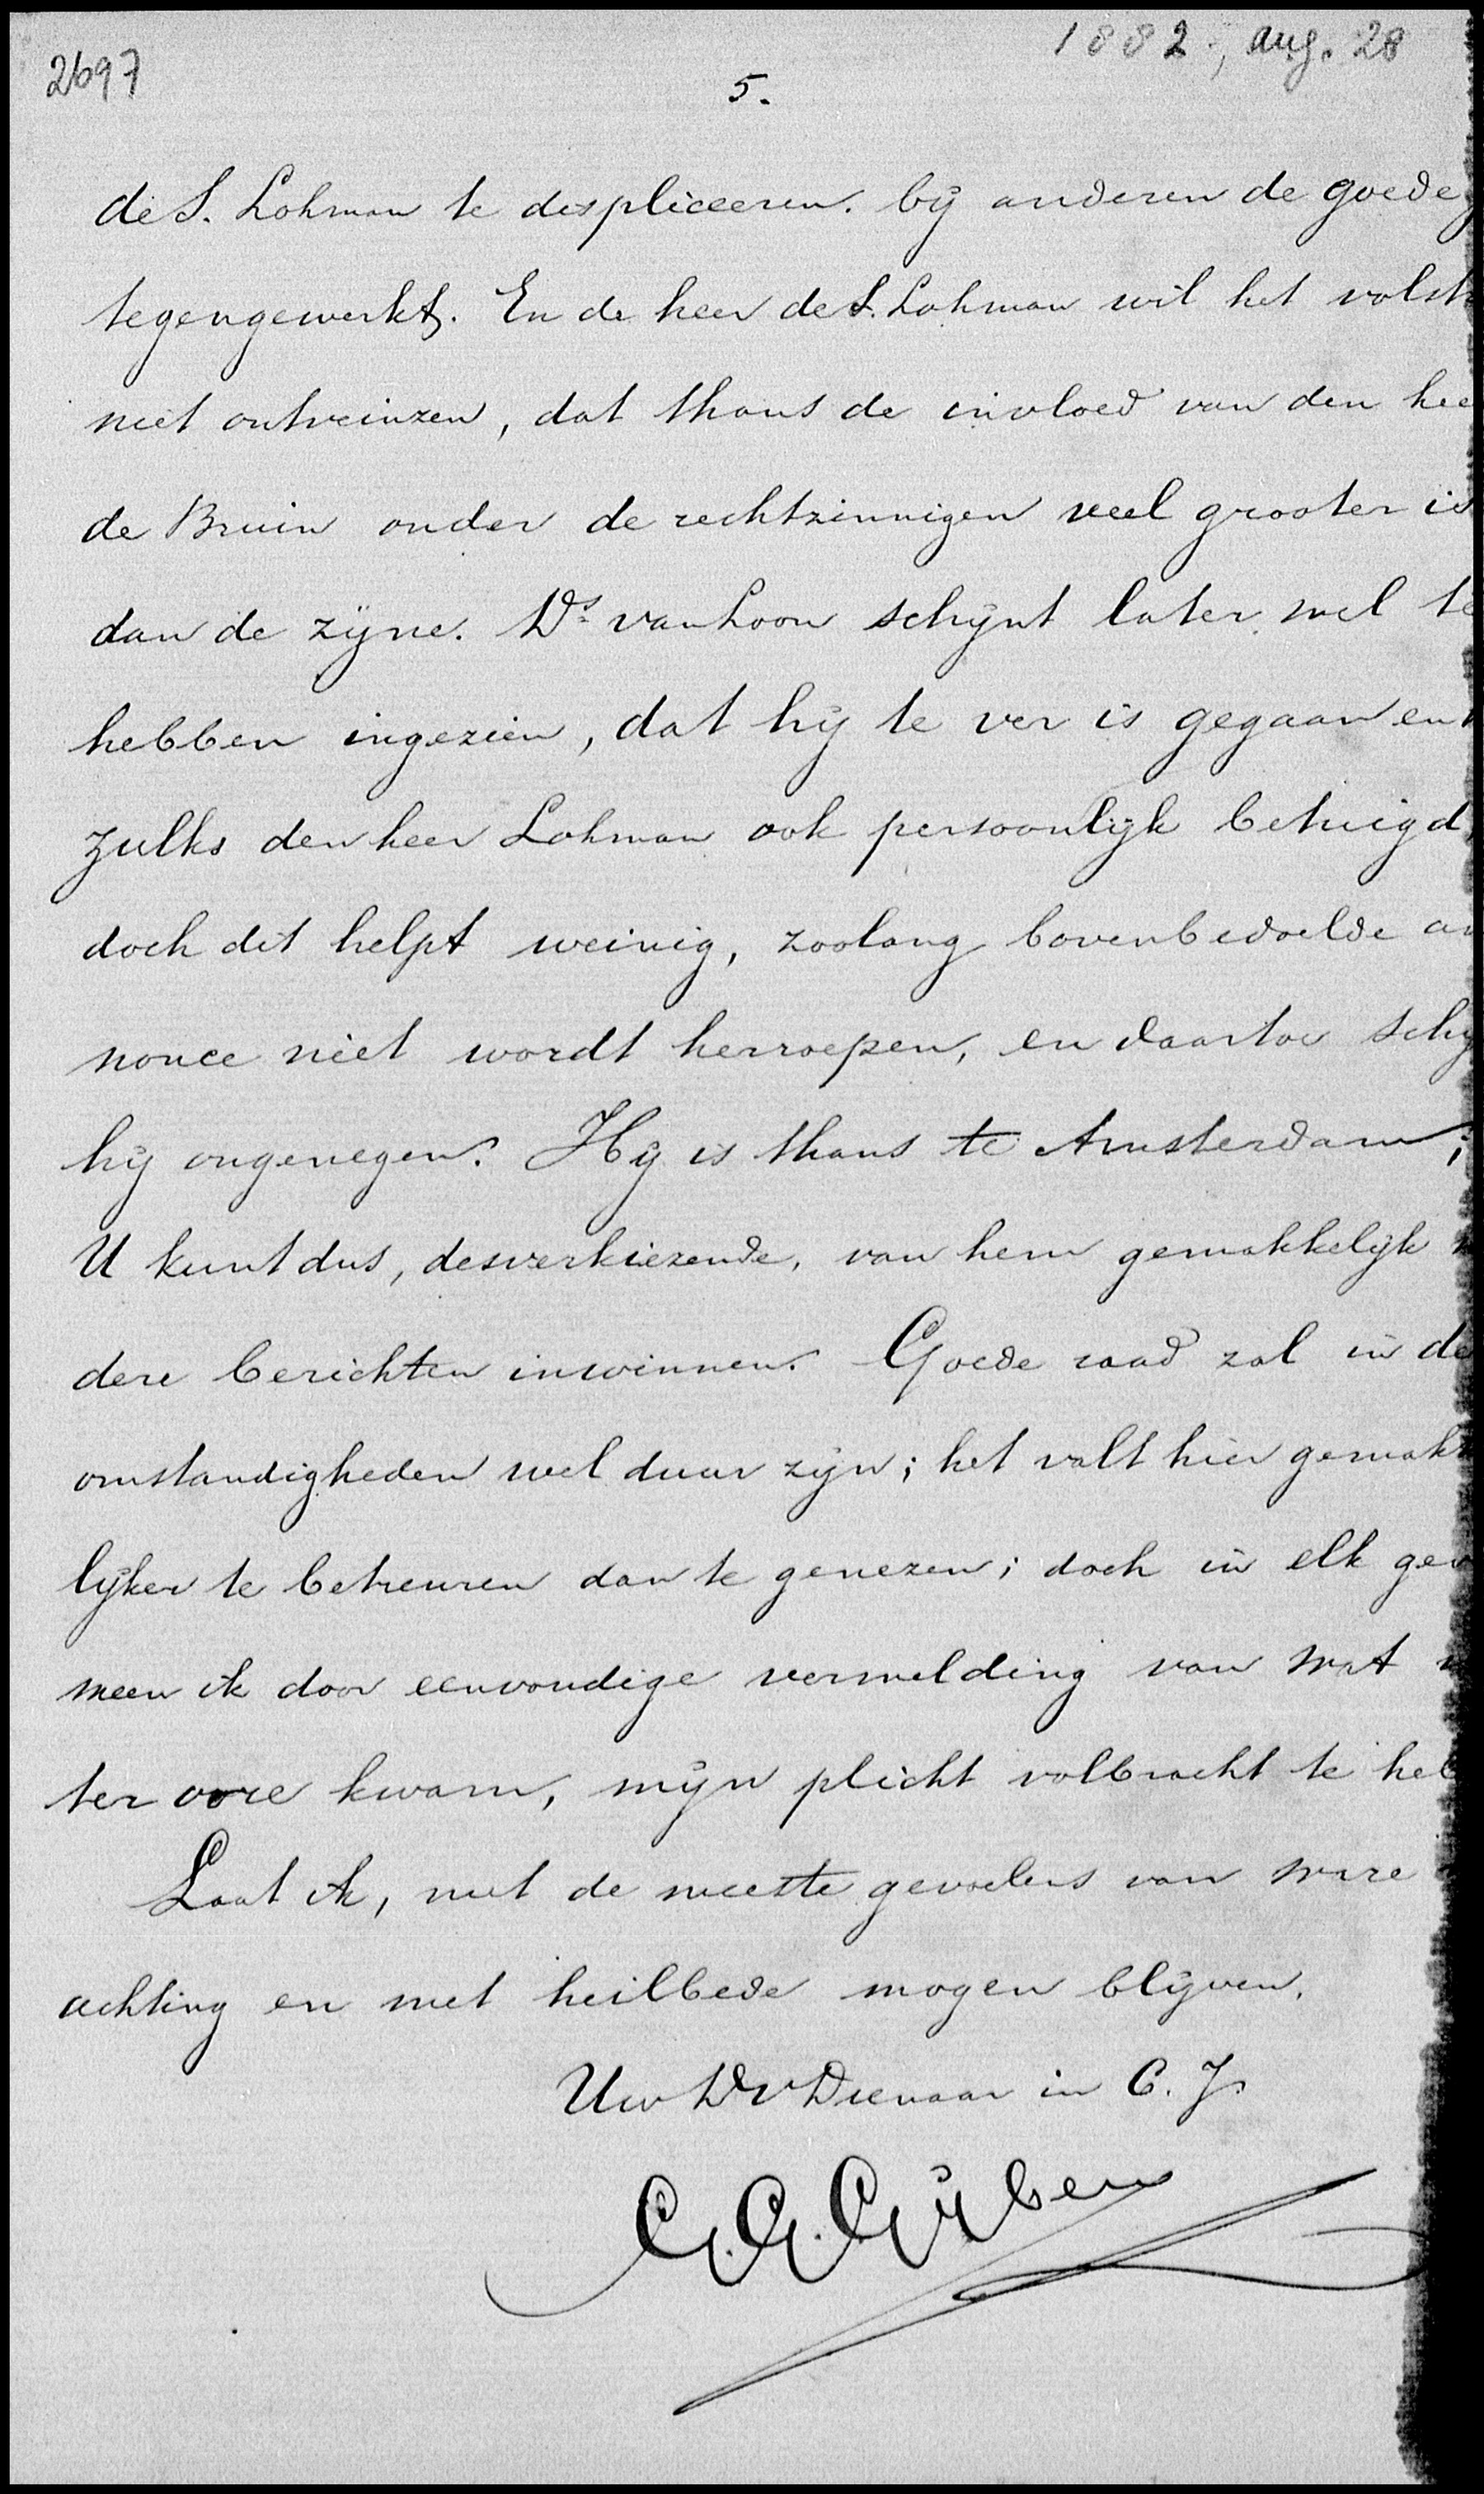 2697
1882, aug. 28
5.
de S. Lohman te despliceeren. by anderen de goede
tegengewerkt. En de heer de S. Lohman wil het volst
niet ontveinzen, dat thans de invloed van den hee
de Bruin onder de rechtzinnigen veel grooter is
dan de zyne. Ds van Loon schynt later wel te
hebben ingezien, dat hy te ver is gegaan en
zulks den heer Lohman ook persoonlyk betuigd,
doch dit helpt weinig, zoolang bovenbedoelde an
nonce niet wordt herroepen, en daartoe schy
hy ongenegen. Hy is thans te Amsterdam;
U kunt dus, desverkiezende, van hem gemakkelyk
dere berichten inwinnen. Goede raad zal in de
omstandigheden wel duur zyn; het valt hier gemakk
lyker te betreuren dan te genezen; doch in elk gev
meen ik door eenvoudige vermelding van wat
ter oore kwam, myn plicht volbracht te heb
Laat ik, met de meeste gevoelens van ware
achting en met heilbede mogen blyven,
Uw Dv Dienaar in C. J.